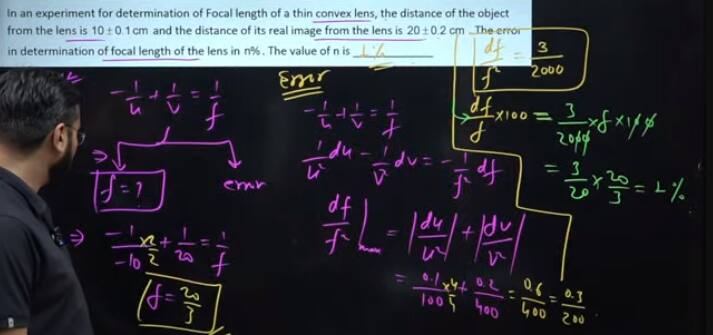 In an experiment for determination of Focal length of a thin convex lens, the distance of the object
from the lens is 10 ± 0.1 cm and the distance of its real image from the lens is 20 ± 0.2 cm . The error
in determination of focal length of the lens in n%. The value of n is 1%
df/f² = 3/2000
Error
-1/u + 1/v = 1/f
f = ?
error
-1/-10 ×2/2 + 1/20 = 1/f
f = 20/3
-1/u + 1/v = 1/f
1/u² du - 1/v² dv = -1/f² df
df/f² |max = |du/u²| + |dv/v²|
= 0.1/100 ×4/4 + 0.2/400 = 0.6/400 = 0.3/200
df/f ×100 = 3/2000 × f × 100
= 3/20 × 20/3 = 1%